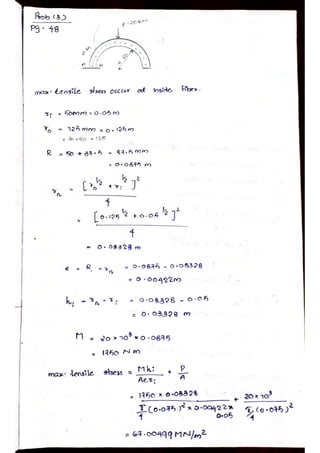 Prob (3)
Pg - 48
P = 20 kN
max: tensile stress occur at inside fiber.
r_i = 50mm = 0.05 m
r_o = 125 mm = 0.125 m
R = 50 + 37.5 = 87.5 mm
= 0.0875 m
r_n = [r_o^½ + r_i^½]² / 4
= [0.125^½ + 0.05^½]² / 4
= 0.08328 m
e = R - r_n = 0.0875 - 0.08328
= 0.00422m
h_i = r_n - r_i = 0.08328 - 0.05
= 0.03328 m
M = 20 x 10³ x 0.0875
= 1750 N m
max: tensile stress = Mh_i / Aer_i + P / A
= 1750 x 0.03328 / π/4 (0.075)² x 0.00422 x 0.05 + 20 x 10³ / π/4 (0.075)²
= 67.00499 MN/m²